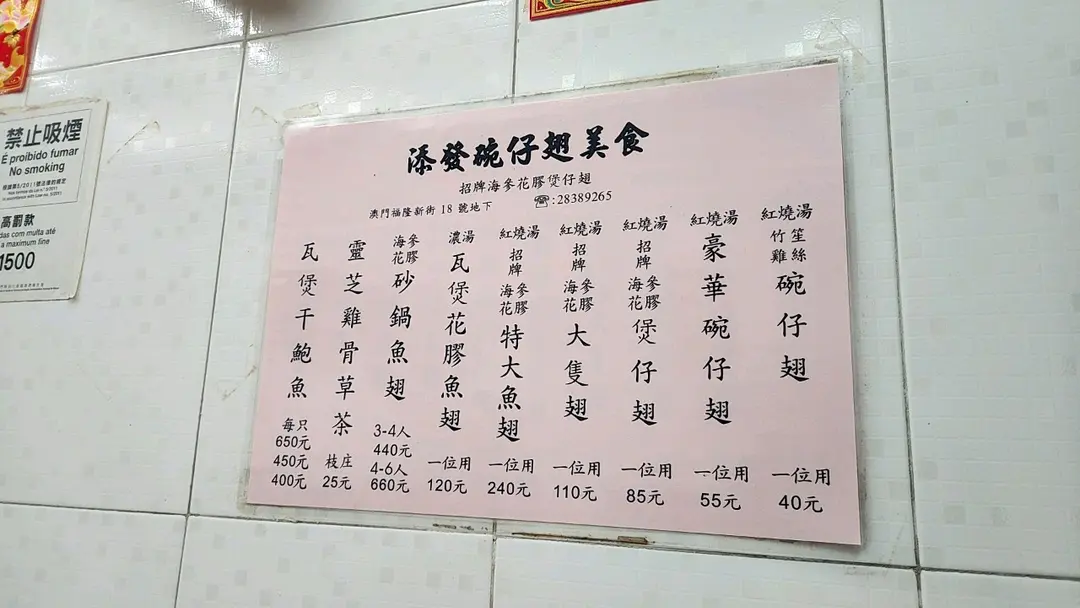 添發碗仔翅美食
招牌海參花膠煲仔翅
澳門福隆新街 18 號地下 ☎:28389265
紅燒湯 竹笙雞絲 碗仔翅 一位用 40元
紅燒湯 豪華碗仔翅 一位用 55元
紅燒湯 招牌 海參花膠 煲仔翅 一位用 85元
紅燒湯 招牌 海參花膠 大隻翅 一位用 110元
紅燒湯 招牌 海參花膠 特大魚翅 一位用 240元
濃湯 瓦煲花膠魚翅 一位用 120元
海參花膠 砂鍋魚翅 3-4人 440元 4-6人 660元
靈芝雞骨草茶 枝庄 25元
瓦煲干鮑魚 每只 650元 450元 400元
禁止吸煙
É proibido fumar
No smoking
高罰款
das com multa até
a maximum fine
1500